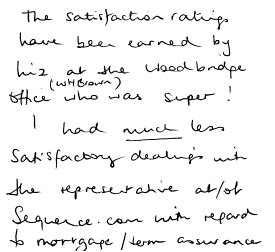 The satisfaction ratings
have been earned by
Liz at the Woodbridge
(WHBrown)
office who was super!
I had much less
satisfactory dealings with
the representative at/of
Sequence.com with regard
to mortgage/term assurance